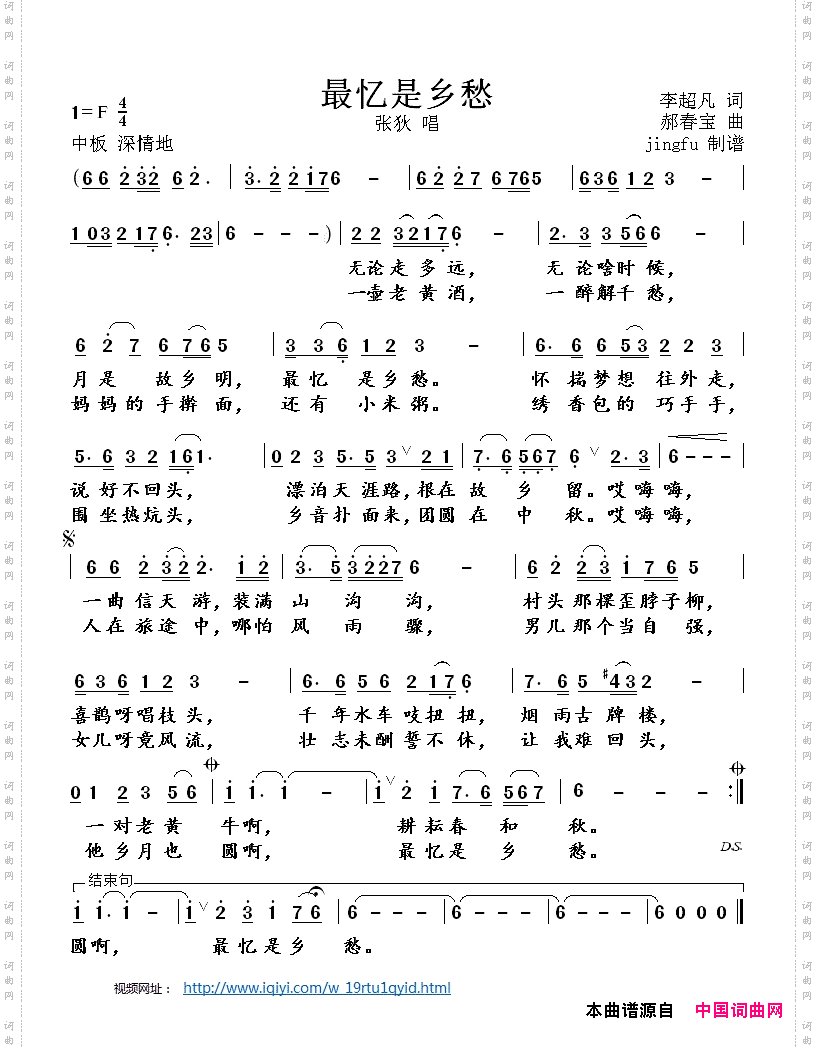 最忆是乡愁
1=F 4/4
李超凡 词
张狄 唱
郝春宝 曲
中板 深情地
jingfu 制谱
(6 6 2 3 2 6 2 · | 3 · 2 2 1 7 6 - | 6 2 2 7 6 7 6 5 | 6 3 6 1 2 3 - |
1 0 3 2 1 1 7 6 · 2 3 | 6 - - - ) | 2 2 3 2 1 7 6 - | 2 · 3 3 5 6 6 - |
无论走多远， 无论啥时候，
一壶老黄酒， 一醉解千愁，
6 2 7 6 7 6 5 | 3 3 6 1 2 3 - | 6 · 6 6 5 3 2 2 3 |
月是 故乡明， 最忆 是乡愁。 怀揣梦想 往外走，
妈妈的手擀面， 还有 小米粥。 绣香包的 巧手手，
5 · 6 3 2 1 6 1 · | 0 2 3 5 · 5 3 ∨ 2 1 | 7 · 6 5 6 7 6 ∨ 2 · 3 | 6 - - - |
说好不回头， 漂泊天涯路，根在故乡留。哎嗨嗨，
围坐热炕头， 乡音扑面来，团圆在中秋。哎嗨嗨，
| 6 6 2 3 2 2 · 1 2 | 3 · 5 3 2 2 7 6 - | 6 2 2 3 1 7 6 5 |
一曲信天游，装满山沟沟， 村头那棵歪脖子柳，
人在旅途中，哪怕风雨骤， 男儿那个当自强，
6 3 6 1 2 3 - | 6 · 6 5 6 2 1 7 6 | 7 · 6 5 #4 3 2 - |
喜鹊呀唱枝头， 千年水车吱扭扭， 烟雨古牌楼，
女儿呀竞风流， 壮志未酬誓不休， 让我难回头，
0 1 2 3 5 6 | 1 1 · 1 - | 1 ∨ 2 1 7 · 6 5 6 7 | 6 - - - :‖
一对老黄牛啊， 耕耘春和秋。
他乡月也圆啊， 最忆是乡愁。
D.S.
结束句
1 1 · 1 - | 1 ∨ 2 3 1 7 6 | 6 - - - | 6 - - - | 6 - - - | 6 0 0 0 ‖
圆啊， 最忆是乡愁。
视频网址： http://www.iqiyi.com/w_19rtu1qyid.html
本曲谱源自 中国词曲网